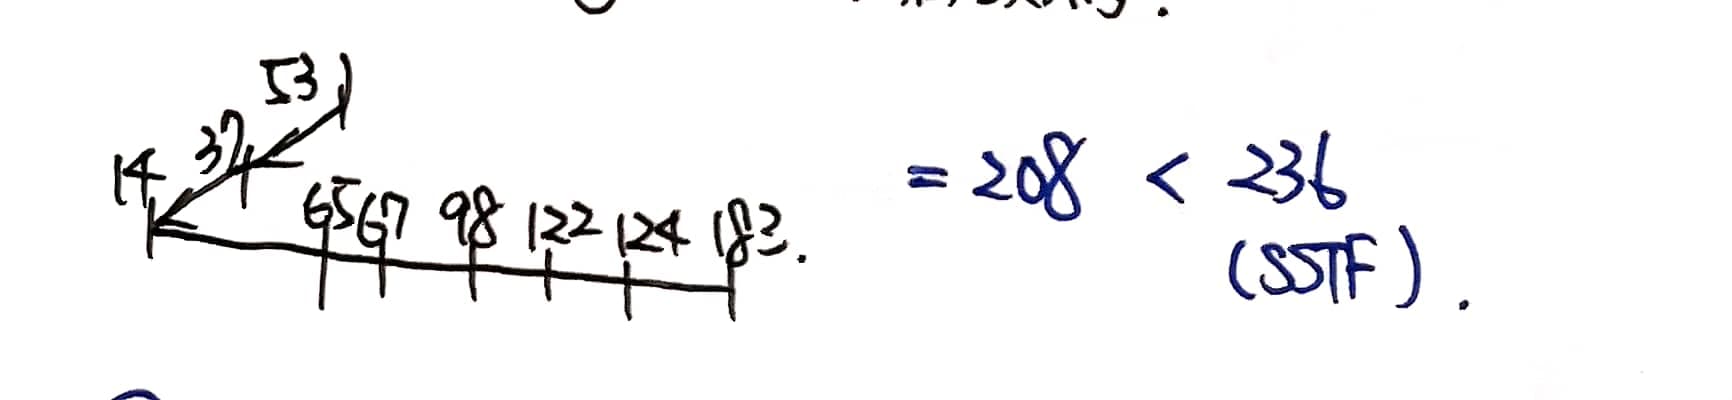 53
37
14
65 67 98 122 124 183.
= 208 < 236
(SSTF).